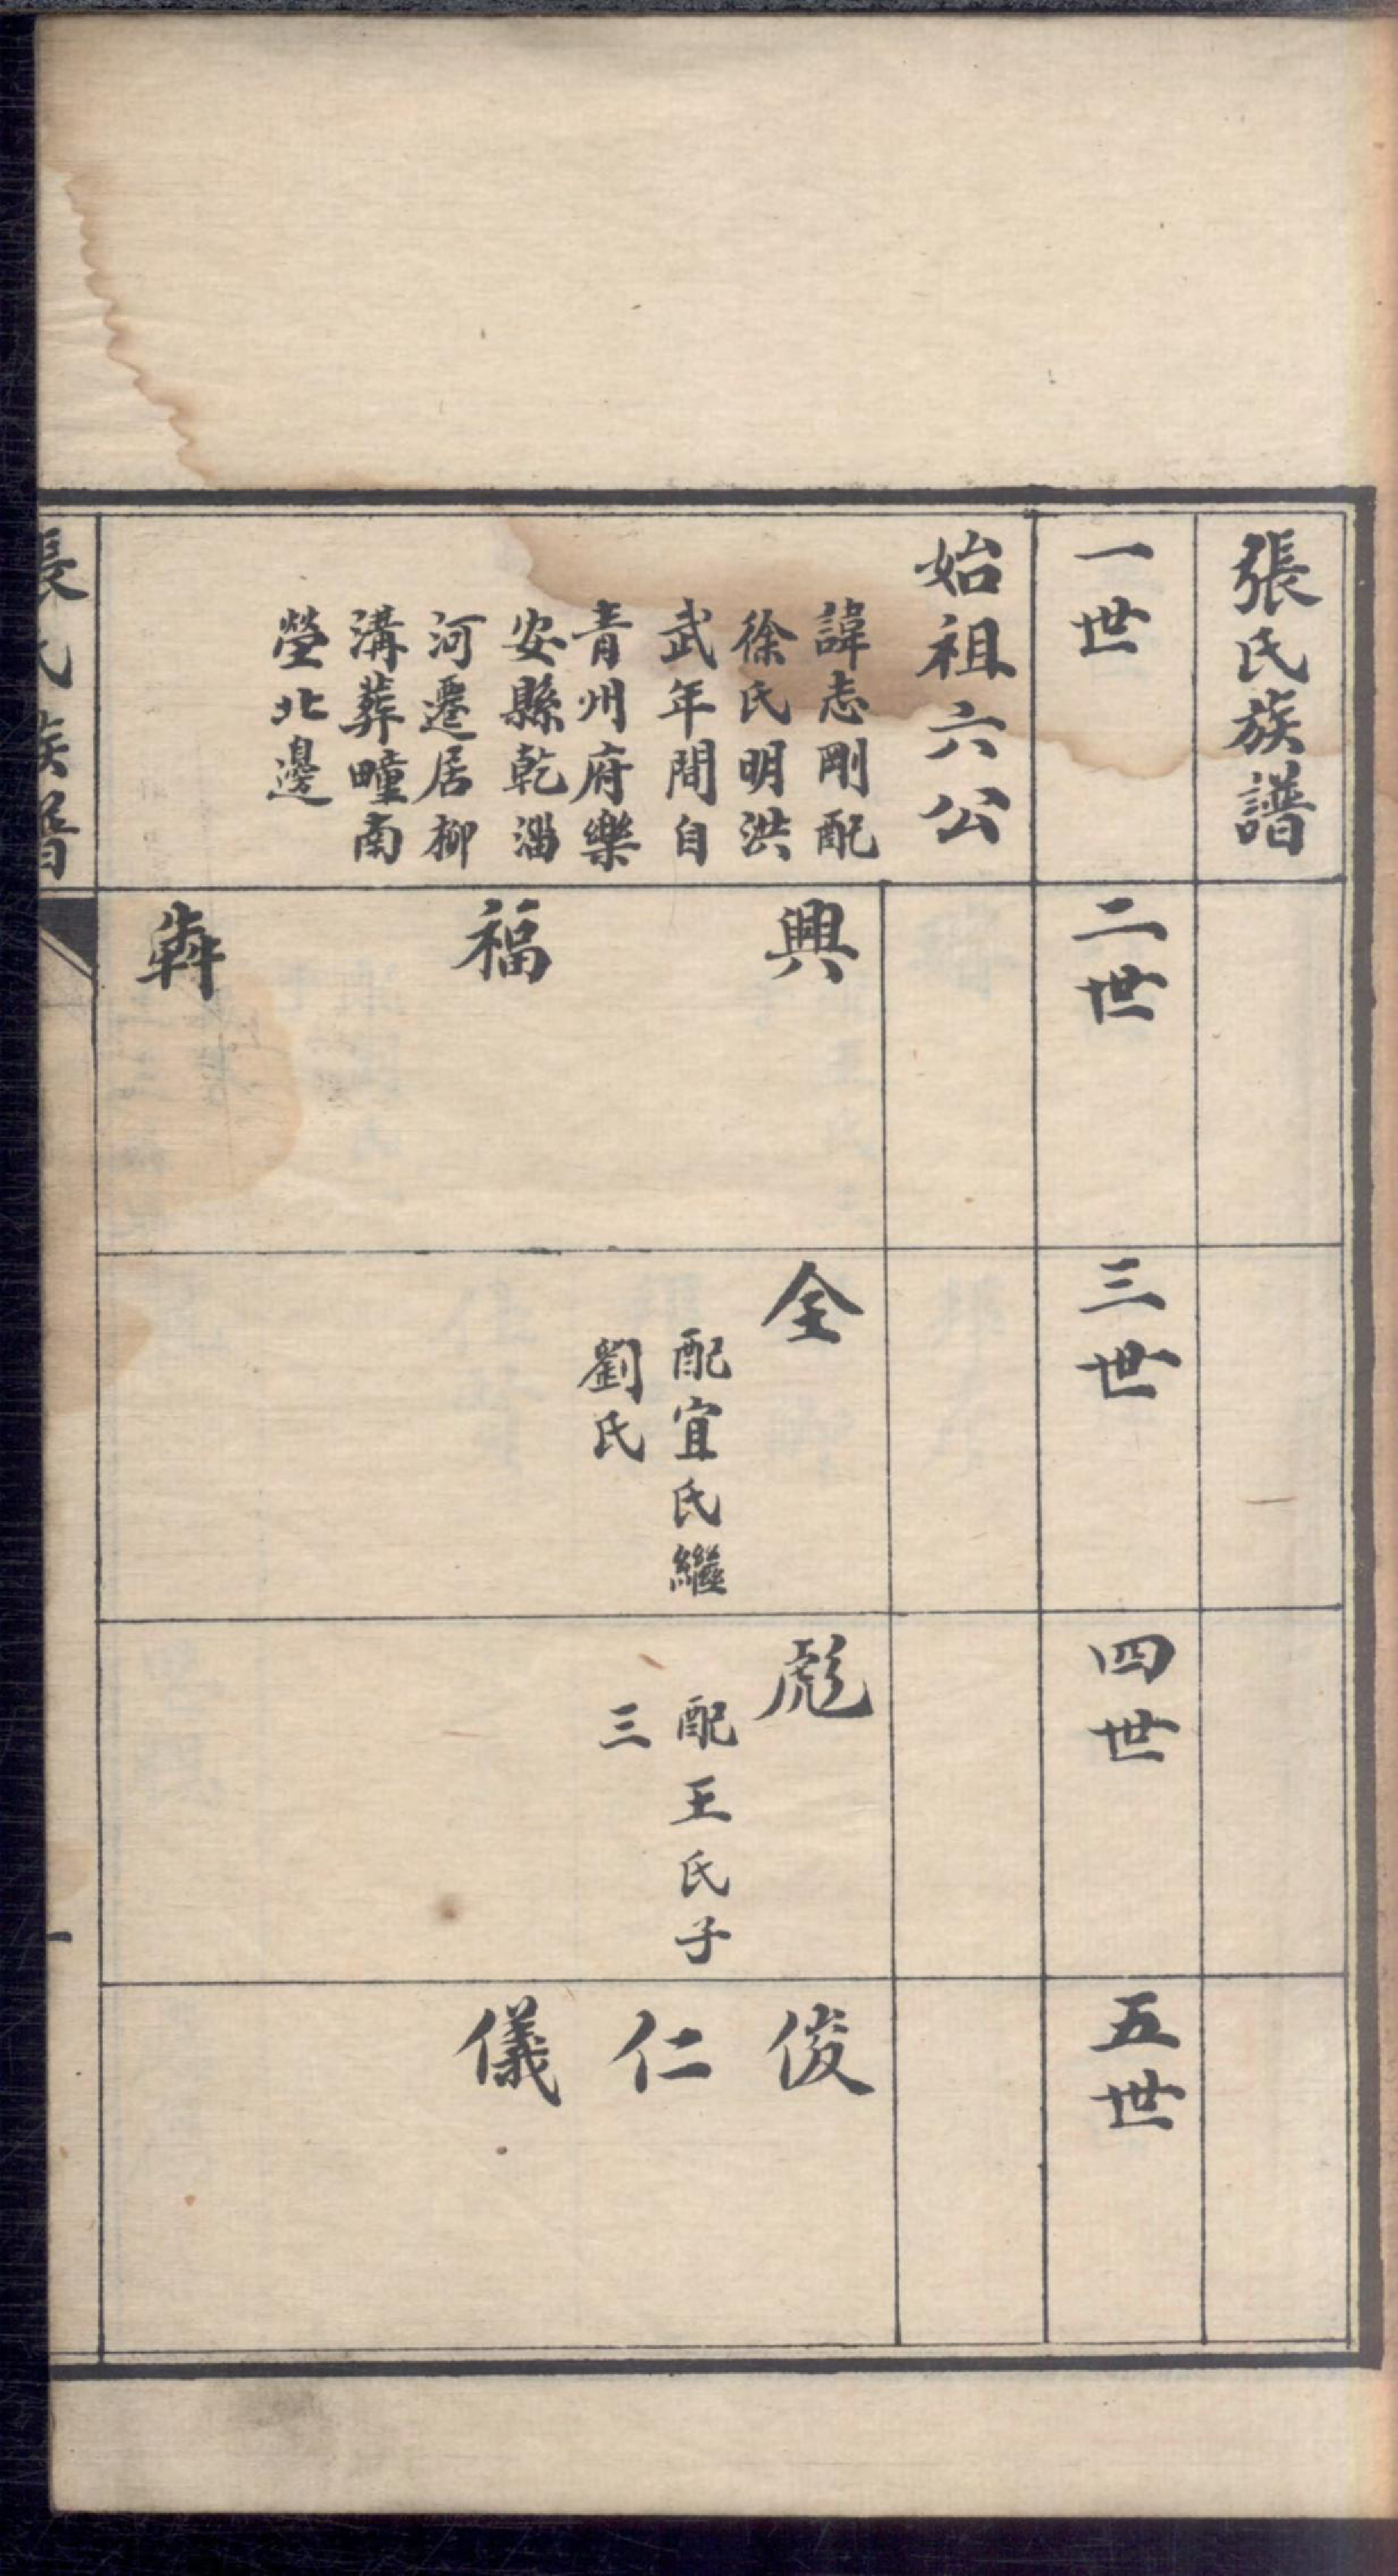 張氏族譜
一世
二世
三世
四世
五世
始祖六公
諱志剛配
徐氏明洪
武年間自
青州府樂
安縣乾淄
河遷居柳
溝葬疃南
塋北邊
興
福
犇
全
配宜氏繼
劉氏
彪
配王氏子
三
俊
仁
儀
張氏族譜
一